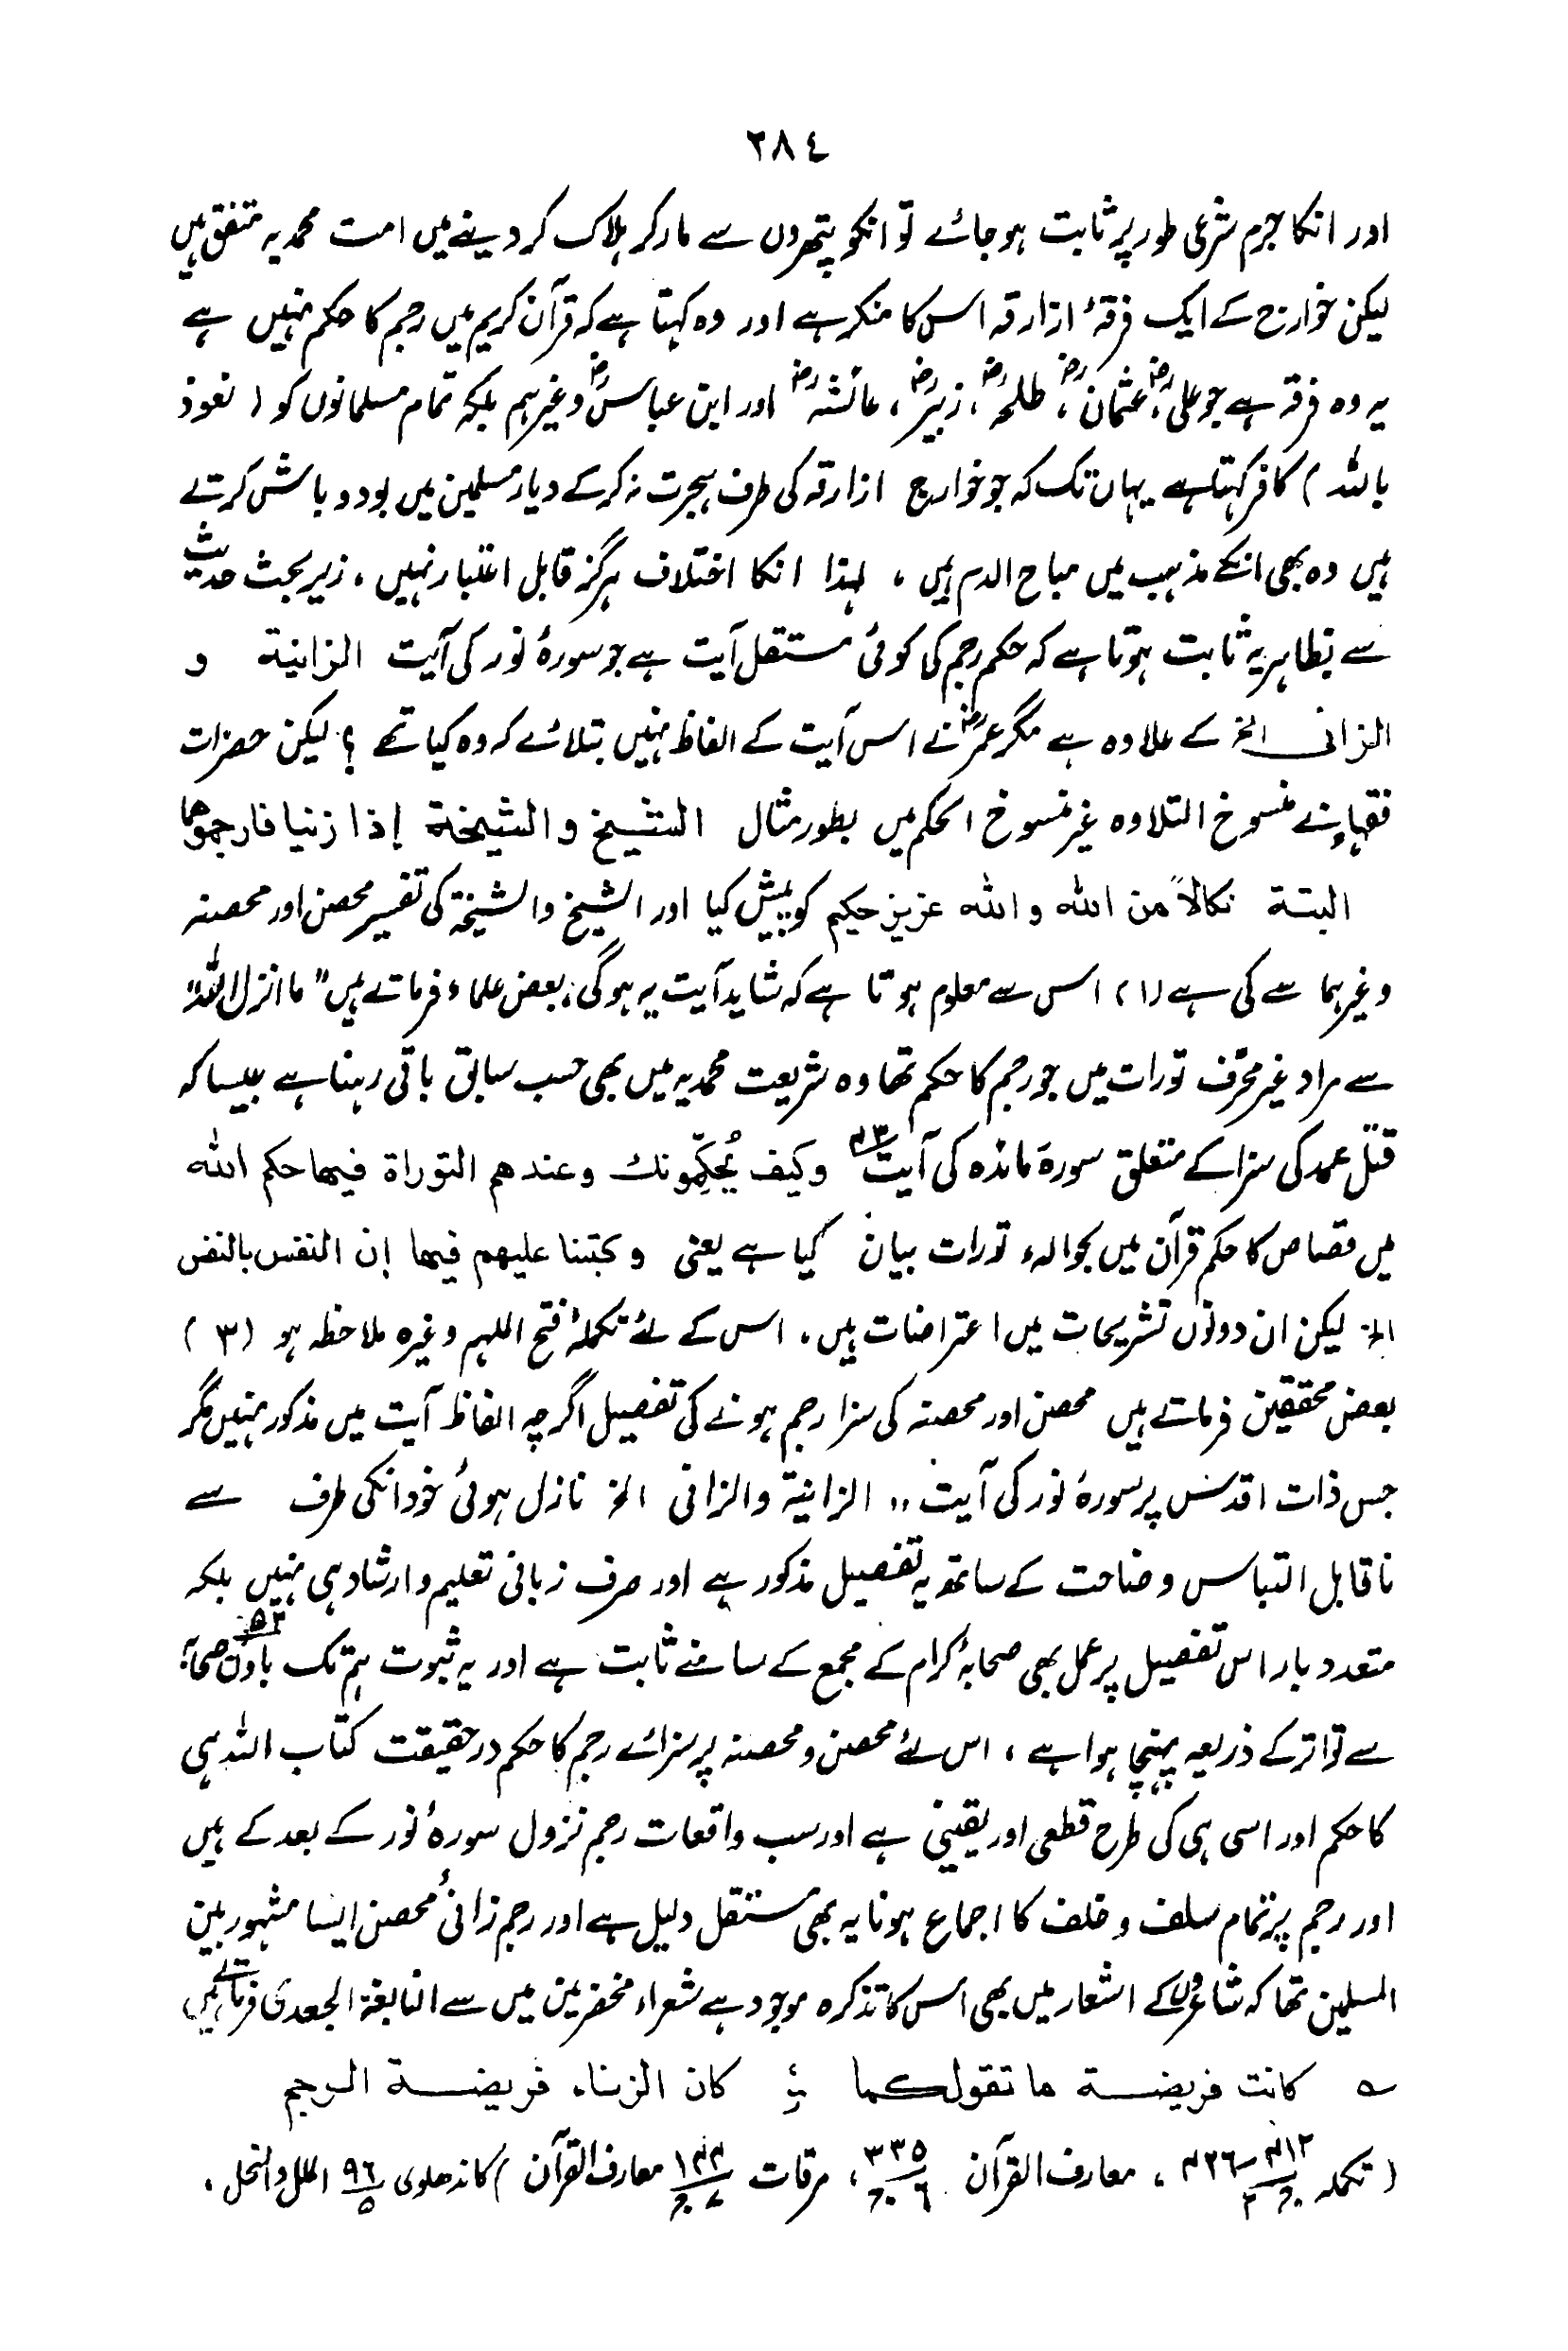 ٢٨٤
اور انکا جرم شرعی طور پر ثابت ہو جائے تو انکو پتھروں سے مار کر ہلاک کر دینے میں امت محمدیہ متفق ہیں
لیکن خوارج کے ایک فرقۂ ازارقہ اس کا منکر ہے اور وہ کہتا ہے کہ قرآن کریم میں رجم کا حکم نہیں ہے
یہ وہ فرقہ ہے جو علیؓ، عثمانؓ، طلحہؓ، زبیرؓ، عائشہؓ اور ابن عباسؓ وغیرہم بلکہ تمام مسلمانوں کو ( نعوذ
باللہ ) کافر کہتا ہے یہاں تک کہ جو خوارج ازارقہ کی طرف ہجرت نہ کر کے دیار مسلمین میں بود و باش کرتے
ہیں وہ بھی انکے مذہب میں مباح الدم ہیں ، لہذا انکا اختلاف ہرگز قابل اعتبار نہیں ، زیر بحث حدیث
سے بظاہر یہ ثابت ہوتا ہے کہ حکم رجم کی کوئی مستقل آیت ہے جو سورۂ نور کی آیت الزانیة و
الزانی الخ کے علاوہ ہے مگر عمرؓ نے اس آیت کے الفاظ نہیں بتلائے کہ وہ کیا تھے ؟ لیکن حضرات
فقہاء نے منسوخ التلاوہ غیر منسوخ الحکم میں بطور مثال الشیخ والشیخة إذا زنیا فارجموهما
البتة نکالاً من الله والله عزیز حکیم کو پیش کیا اور الشیخ والشیخۃ کی تفسیر محصن اور محصنہ
وغیرہما سے کی ہے (۱) اس سے معلوم ہوتا ہے کہ شاید آیت یہ ہوگی، بعض علماء فرماتے ہیں "ما انزل اللہ"
سے مراد غیر محرّف تورات میں جو رجم کا حکم تھا وہ شریعت محمدیہ میں بھی حسب سابق باقی رہنا ہے جیسا کہ
قتل عمد کی سزا کے متعلق سورۃ مائدہ کی آیت ۴۳ وکیف یُحکِّمونك وعندهم التوراة فیها حکم الله
میں قصاص کا حکم قرآن میں بحوالہء تورات بیان کیا ہے یعنی وکتبنا علیهم فیها إن النفس بالنفس
الخ لیکن ان دونوں تشریحات میں اعتراضات ہیں ، اس کے لئے تکملۂ فتح اللہم وغیرہ ملاحظہ ہو (۳)
بعض محققین فرماتے ہیں محصن اور محصنہ کی سزا رجم ہونے کی تفصیل اگرچہ الفاظ آیت میں مذکور نہیں مگر
جس ذات اقدس پر سورۂ نور کی آیت ،، الزانیة والزانی الخ نازل ہوئی خود انکی طرف سے
ناقابل التباس وضاحت کے ساتھ یہ تفصیل مذکور ہے اور صرف زبانی تعلیم وارشاد ہی نہیں بلکہ
متعدد بار اس تفصیل پر عمل بھی صحابۂ کرام کے مجمع کے سامنے ثابت ہے اور یہ ثبوت ہم تک باون ۵۲ صحابہ
سے تواتر کے ذریعہ پہنچا ہوا ہے ، اس لئے محصن و محصنہ پر سزائے رجم کا حکم درحقیقت کتاب اللہ ہی
کا حکم اور اسی ہی کی طرح قطعی اور یقینی ہے اور سب واقعات رجم نزول سورۂ نور کے بعد کے ہیں
اور رجم پر تمام سلف وخلف کا اجماع ہونا یہ بھی مستقل دلیل ہے اور رجم زانیٔ محصن ایسا مشہور بین
المسلمین تھا کہ شاعروں کے اشعار میں بھی اس کا تذکرہ موجود ہے شعراء مخضرمین میں سے النابغۃ الجعدی فرماتے ہیں
؎ کانت فریضة ما تقول کما ؛ کان الزناء فریضة الرجم
( تکملہ ۴۱۲-۴۲۶ ج ۲ ، معارف القرآن ۳۳۵ ج ٦ ، مرقات ۱۲۴ ج ۷ معارف القرآن ) کاندھلوی ۹٦/۵ الملل والنحل .